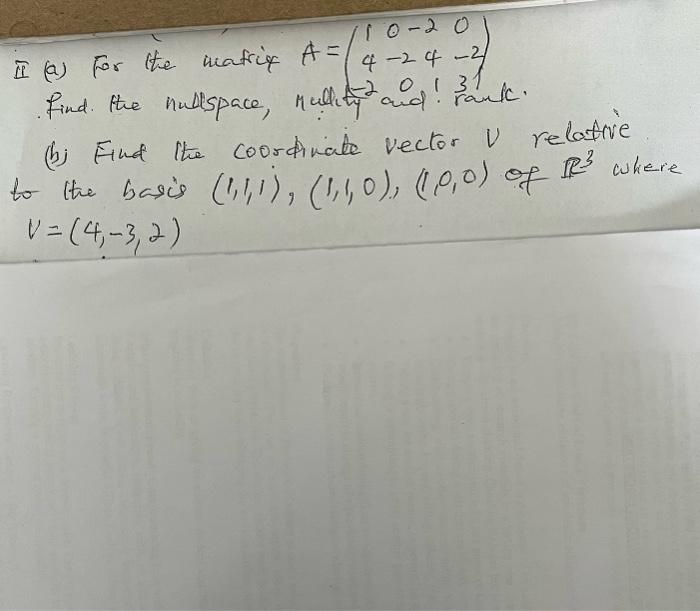 II (a) For the matrix A = (1 0 -2 0
4 -2 4 -2
-2 0 1 3)
find. the nullspace, nullity and rank.
(b) Find the coordinate vector V relative
to the basis (1,1,1), (1,1,0), (1,0,0) of ℝ³ where
V = (4,-3,2)